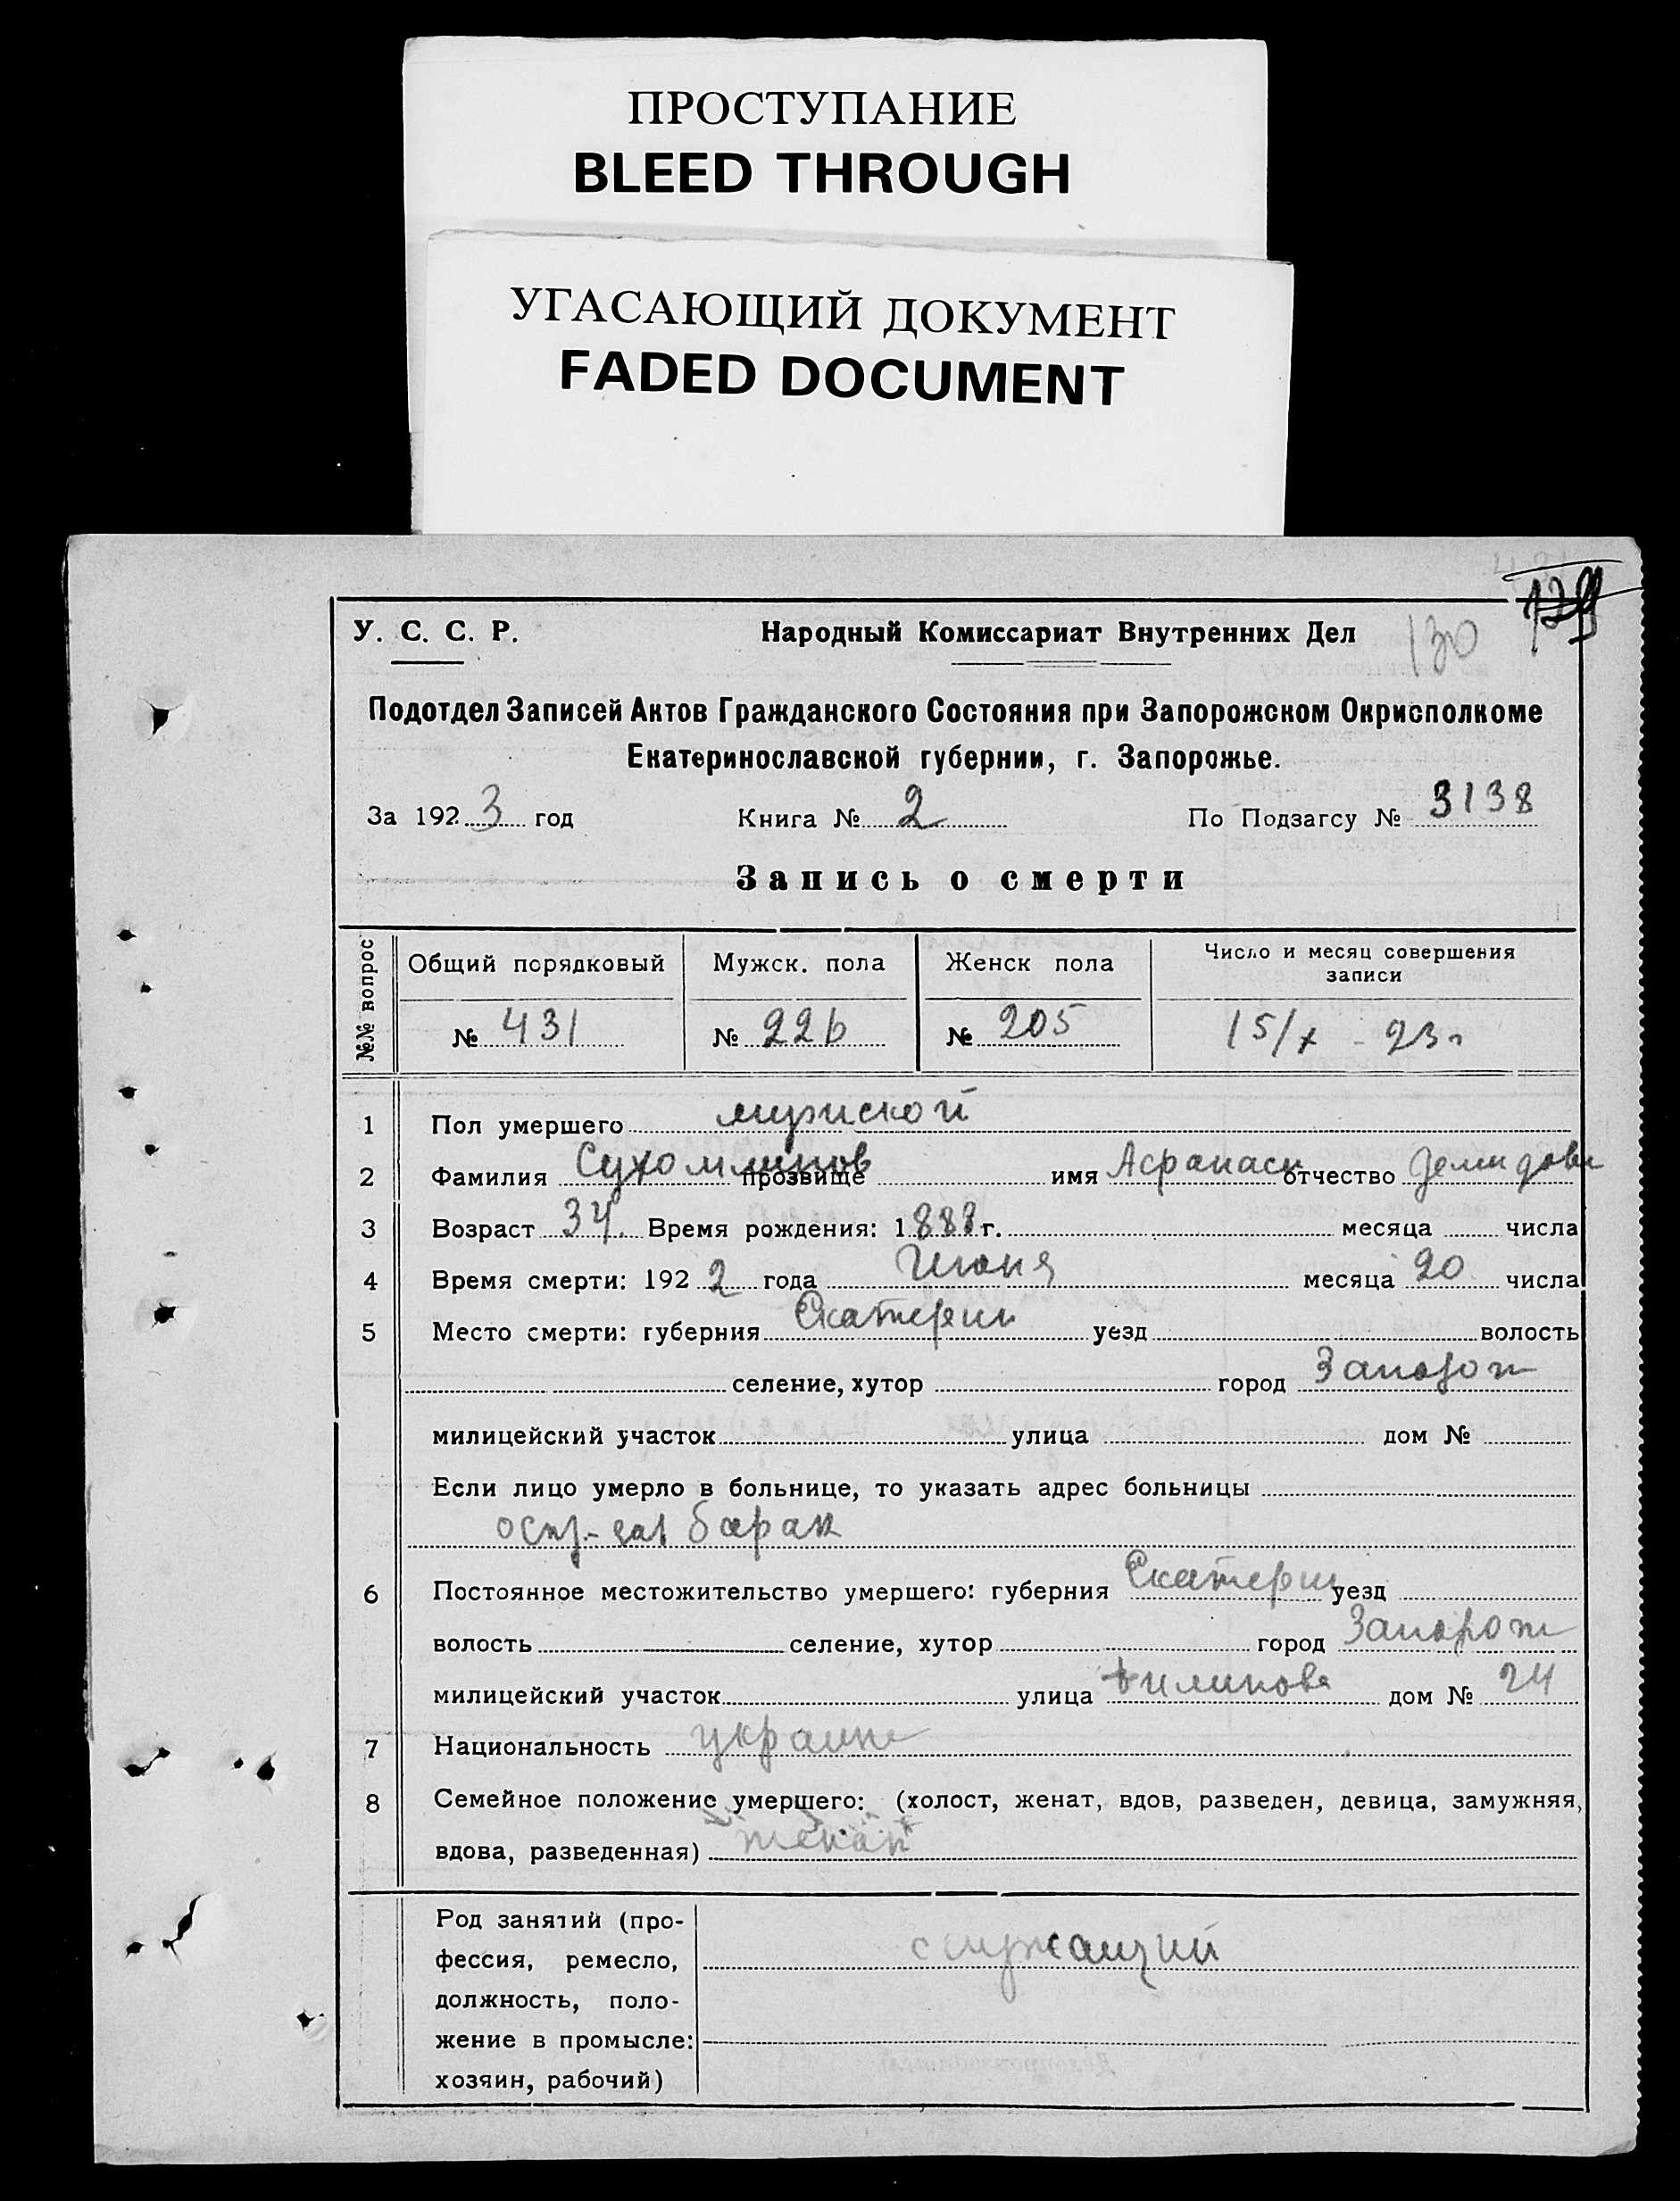 ПРОСТУПАНИЕ
BLEED THROUGH
УГАСАЮЩИЙ ДОКУМЕНТ
FADED DOCUMENT
129
У. С. С. Р. Народный Комиссариат Внутренних Дел 130
Подотдел Записей Актов Гражданского Состояния при Запорожском Окрисполкоме
Екатеринославской губернии, г. Запорожье.
За 1923 год Книга № 2 По Подзагсу № 3138
Запись о смерти
№№ вопрос Общий порядковый Мужск. пола Женск пола Число и месяц совершения
записи
№ 431 № 226 № 205 15/X - 23 г
1 Пол умершего мужской
2 Фамилия Сухомлинов прозвище имя Афанаси отчество Демидови
3 Возраст 34. Время рождения: 1888 г. месяца числа
4 Время смерти: 192 2 года Июня месяца 20 числа
5 Место смерти: губерния Екатерин уезд волость
селение, хутор город Запорож
милицейский участок улица дом №
Если лицо умерло в больнице, то указать адрес больницы
барак
6 Постоянное местожительство умершего: губерния Екатерин уезд
волость селение, хутор город Запорож
милицейский участок улица дом № 24
7 Национальность украин
8 Семейное положение умершего: (холост, женат, вдов, разведен, девица, замужняя,
вдова, разведенная) женат
Род занятий (про-
фессия, ремесло, служащий
должность, поло-
жение в промысле:
хозяин, рабочий)